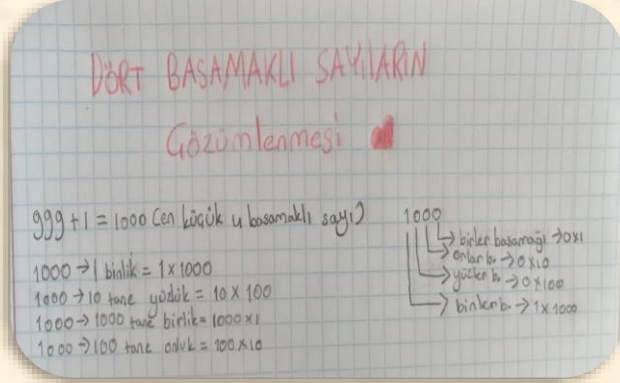 DÖRT BASAMAKLI SAYILARIN
Çözümlenmesi
999 + 1 = 1000 (en küçük 4 basamaklı sayı)
1000 → 1 binlik = 1 x 1000
1000 → 10 tane yüzlük = 10 x 100
1000 → 1000 tane birlik = 1000 x 1
1000 → 100 tane onluk = 100 x 10
1000
→ birler basamağı → 0x1
→ onlar b. → 0 x 10
→ yüzler b. → 0 x 100
→ binler b. → 1 x 1000